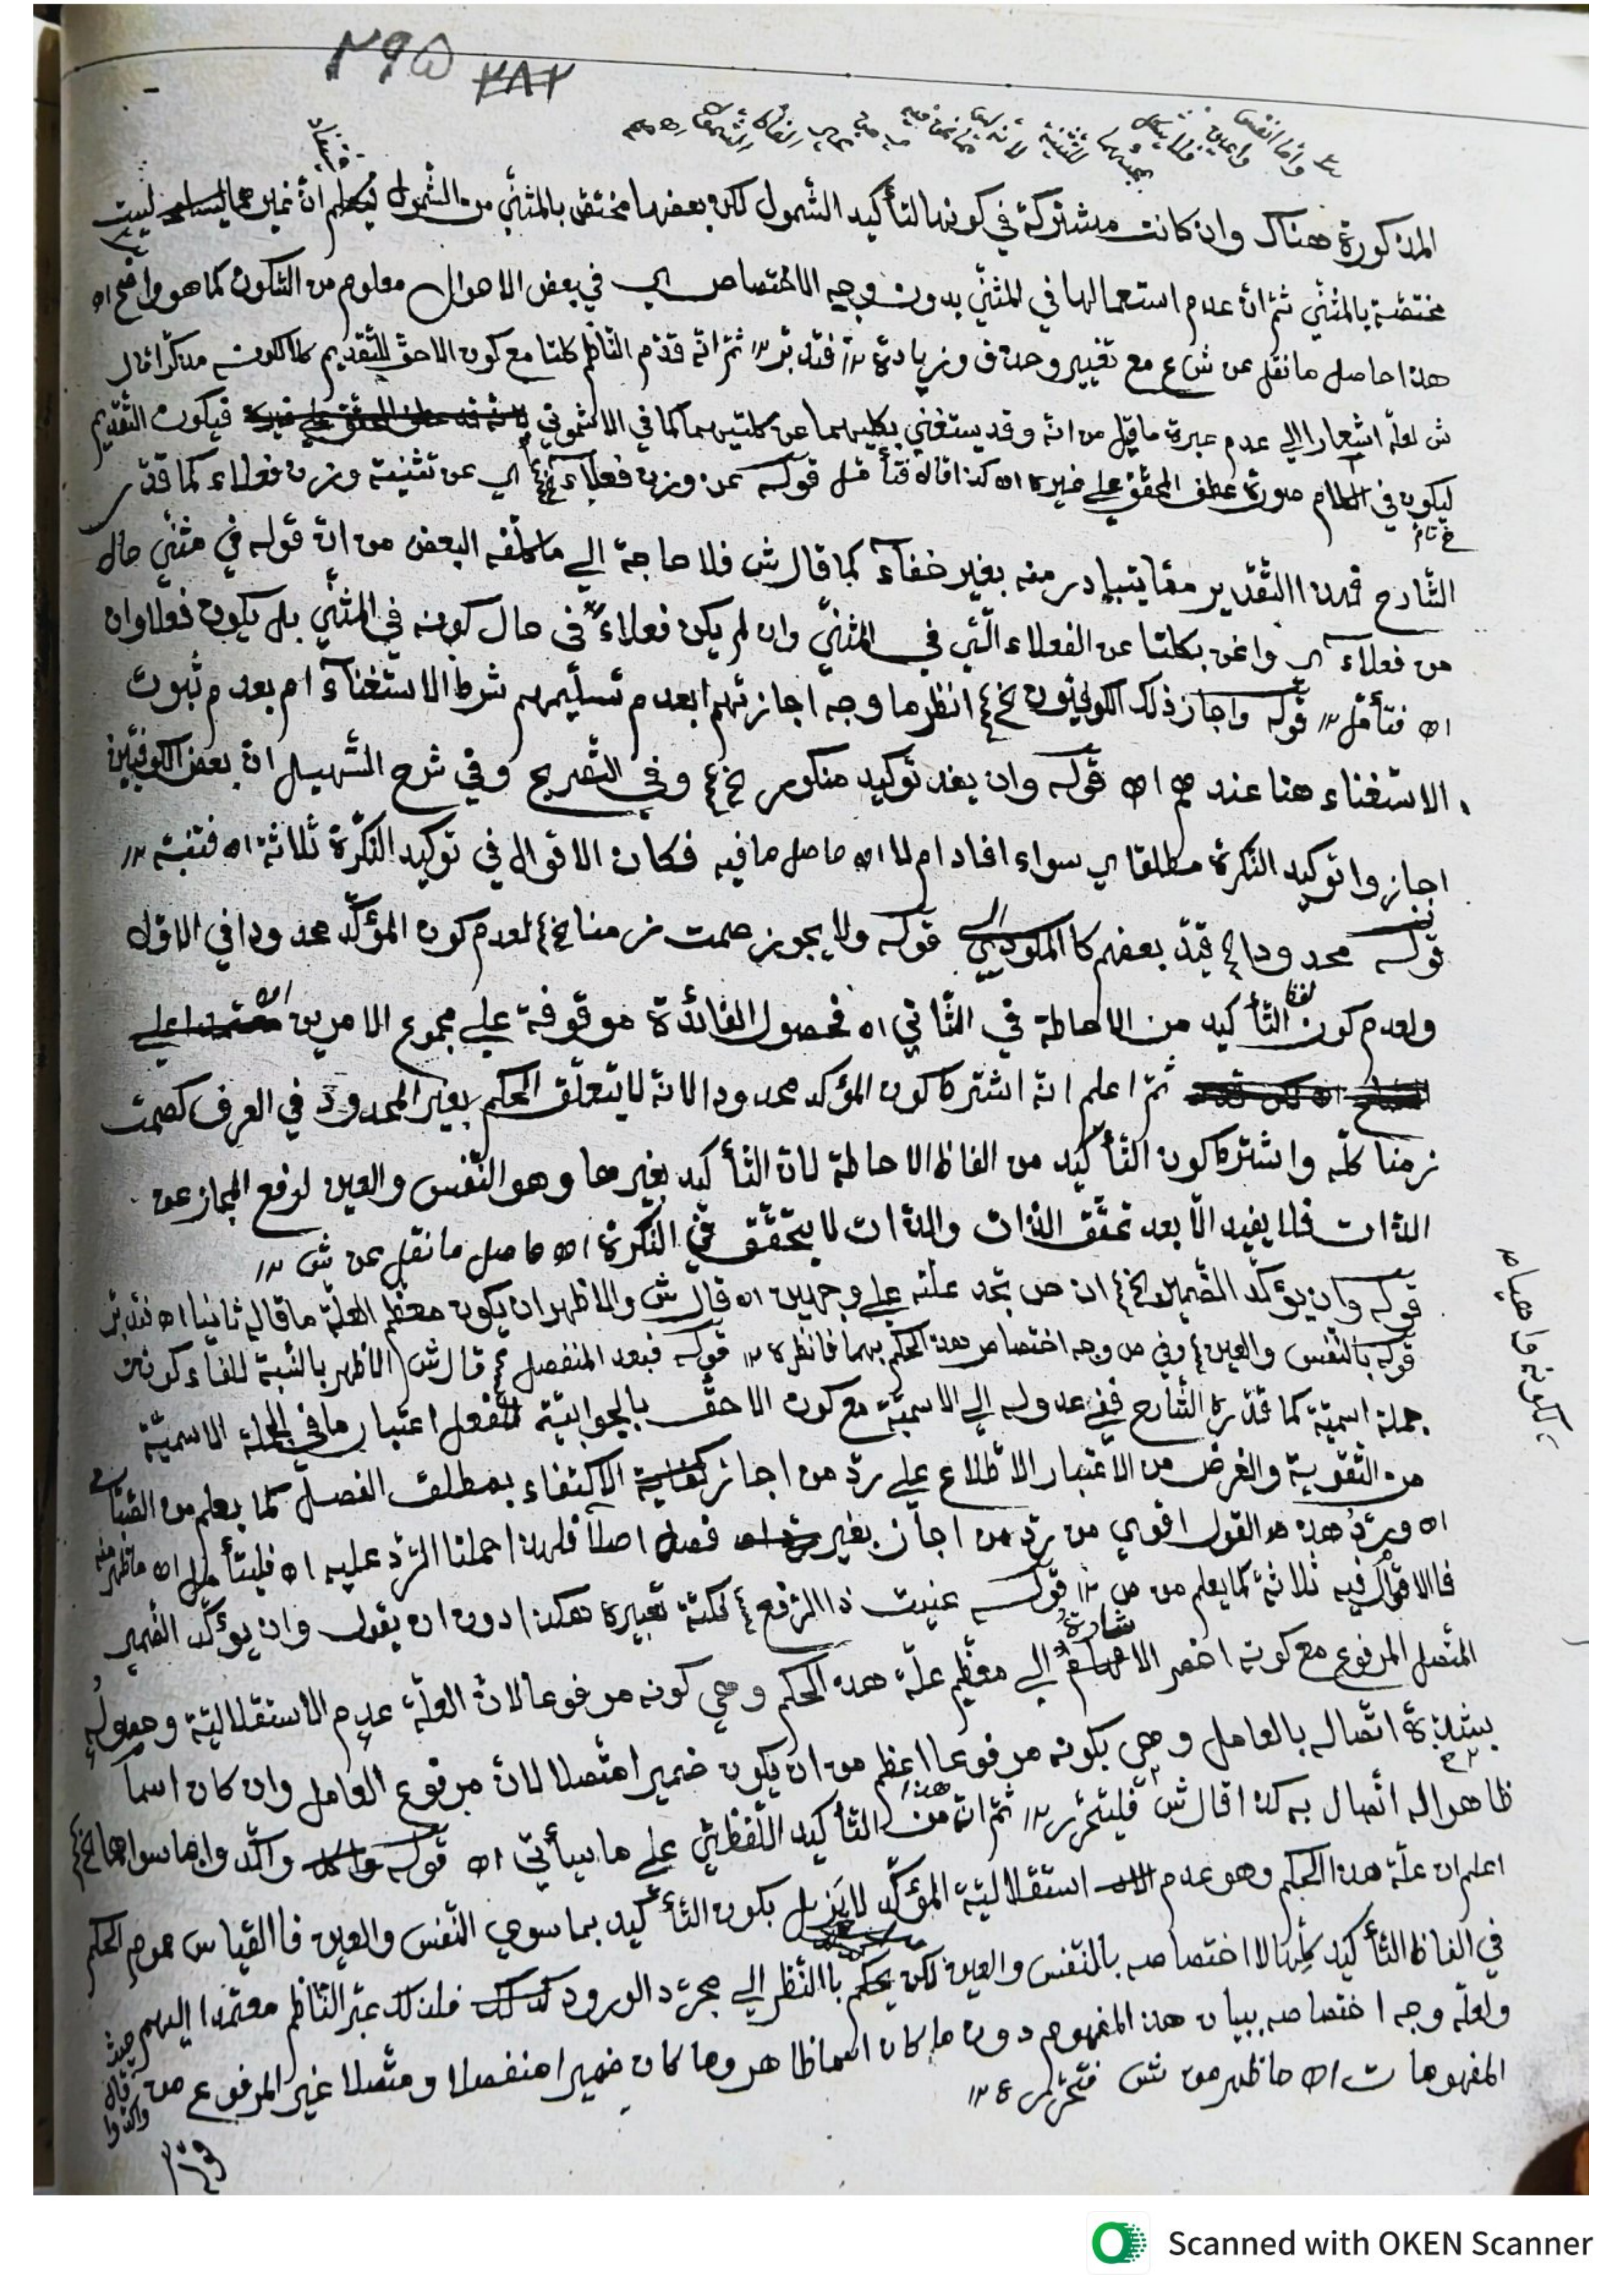 ٢٩٥ ٢٨٢
واما انفس واعين فلا يشكل
المذكورة هناك وان كانت مشتركة في كونها لتأكيد الشمول لكن بعضها مختص بالمثنّي من الشمول انّ غير ليست
مختصّة بالمثنّي ثمّ انّ عدم استعمالها في المثنّي بدون وجه الاختصاص اي في بعض الاحوال معلوم من السّكوت كما هو واضح اه
هذا حاصل ما نقل عن ش ع مع تغيير وحذف وزيادة فتدبّر ثمّ انّه قدّم النّاظم كلتا مع كون الاحقّ للتّقديم كلا لكونه مذكّرا قال
ش لعلّه اشعارا الي عدم عبرة ما قيل من انّه وقد يستغني بكليهما عن كلتيهما كما في الاشموني فيكون التّقديم
ليكون في الكلام صورة عطف المحقّق علي غيره اه كذا قاله فتأمّل قوله عن وزن فعلاء الخ اي عن تثنية وزن فعلاء كما قدّر
الشّارح فهذا التّقدير ممّا يتبادر منه بغير خفآء كما قال ش فلا حاجة الي ما تكلّفه البعض من انّ قوله في مثنّي حال
من فعلاء اي واغن بكلتا عن الفعلاء الّتي في المثنّي وان لم يكن فعلاء في حال كونه في المثنّي بل يكون فعلاوان
اه فتأمّل قوله واجاز ذلك الكوفيّون الخ انظر ما وجه اجازتهم ابعدم تسليمهم شرط الاستغنآء ام بعدم ثبوت
الاستغناء هنا عندهم اه قوله وان يفد توكيد منكور الخ وفي التّصريح وفي شرح التّسهيل انّ بعض الكوفيّين
اجازوا توكيد النّكرة مطلقا اي سواء افاد ام لا اه حاصل ما فيه فكان الاقوال في توكيد النّكرة ثلاثة اه فتنبّه
قوله محدودا قيّد بعضهم كالمكودي قوله ولا يجوز صمت زمنا الخ لعدم كون المؤكّد محدودا في الاوّل
ولعدم كون التّأكيد من الاحاطة في الثّاني اه فحصول الفائدة موقوفة علي مجموع الامرين
ثمّ اعلم انّه اشترط كون المؤكد محدودا لانّه لا يتعلّق الحكم بغير المحدود في العرف كصمت
زمنا كلّه واشترط كون التّأكيد من الفاظ الاحاطة لانّ التّأكيد بغيرها وهو النّفس والعين لرفع المجاز عن
الذّات فلا يفيد الّا بعد تحقّق الذّات والذّات لا يتحقّق في النّكرة اه حاصل ما نقل عن ش
قوله وان يؤكّد الضّمير الخ ان ص تجد علّته علي وجهين اه قال ش والاظهر ان يكون معظم العلّة ما قاله ثانيا اه فتدبّر
قوله بالنّفس والعين وفي ص وجه اختصاص هذا الحكم بهما فانظره قوله فبعد المنفصل قال ش الاظهر بالنّسبة للفآء كونه
جملة اسميّة كما قدّره الشّارح ففي عدوله الي الاسميّة مع كون الاحقّ بالجوابيّة الفعل اعتبار ما في الجملة الاسميّة
من التّقوية والغرض من الاعتبار الاطّلاع علي ردّ من اجاز الاكتفاء بمطلق الفصل كما يعلم من
اه وردّ هذه القول اقوي من ردّ من اجاز بغير فصل اصلا فلهذا حملنا الرّد عليه اه فليتأمّل اه
فالاقوال فيه ثلاثة كما يعلم من ص قوله عنيت ذا الرّفع نكتة تعبيره هكذا دون ان يقول وان يؤكّد الضّمير
المتّصل المرفوع مع كونه اخصر الاشارة الي معظم علّة هذا الحكم وهي كونه مرفوعا لانّ العلّة عدم الاستقلاليّة وحصوله
بشدّة اتّصاله بالعامل وهي بكونه مرفوعا اعظم من ان يكون ضميرا متّصلا لانّ مرفوع العامل وان كان اسما
ظاهرا له اتّصال به كذا قال ش فليتحرّر ثمّ انّ هذا من التّأكيد اللّفظيّ علي ما سيأتي اه قوله واكّدوا بما سواهما الخ
اعلم ان علّة هذا الحكم وهو عدم استقلاليّة المؤكّد لا يزيل بكون التّأكيد بما سوي النّفس والعين فالقياس عموم الحكم
في الفاظ التّأكيد كلّها لا اختصاصه بالنّفس والعين لكن بالنّظر الي مجرّد الورود فلذلك عبّر النّاظم معتمدا اليهم حيث قال واكّدوا
ولعلّه وجه اختصاصه ببيان هذا المفهوم دون ما كان اسما ظاهر وما كان ضميرا منفصلا ومتّصلا غير المرفوع من
المفهومات اه ما ظهر من ش فتحرّر
Scanned with OKEN Scanner